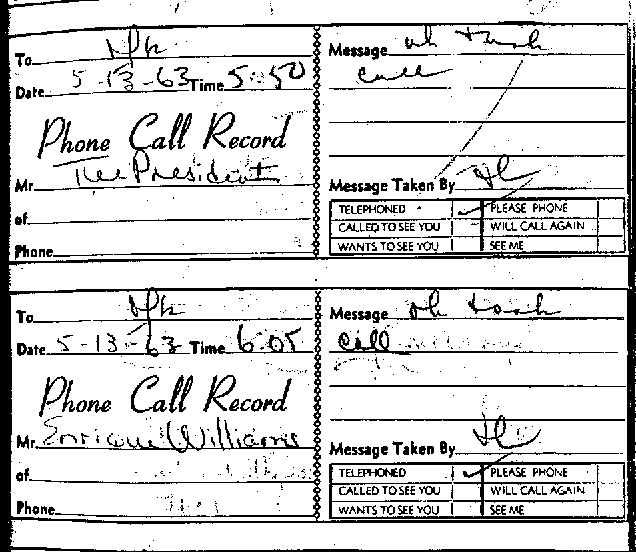 To
Date 5-13-63 Time 5:50
Phone Call Record
Mr. The President
of
Phone
Message ok took
call
Message Taken By
TELEPHONED PLEASE PHONE
CALLED TO SEE YOU WILL CALL AGAIN
WANTS TO SEE YOU SEE ME
To
Date 5-13-63 Time 6:05
Phone Call Record
Mr. Enrique Williams
of
Phone
Message ok took
call
Message Taken By
TELEPHONED PLEASE PHONE
CALLED TO SEE YOU WILL CALL AGAIN
WANTS TO SEE YOU SEE ME